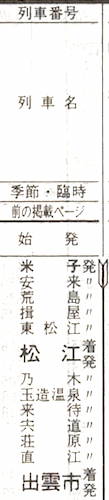 列車番号
列車名
季節・臨時
前の掲載ページ
始発
米子発
安来〃
荒島〃
揖屋〃
東松江〃
松江着
発
乃木〃
玉造温泉〃
来待〃
宍道〃
荘原〃
直江〃
出雲市着
発